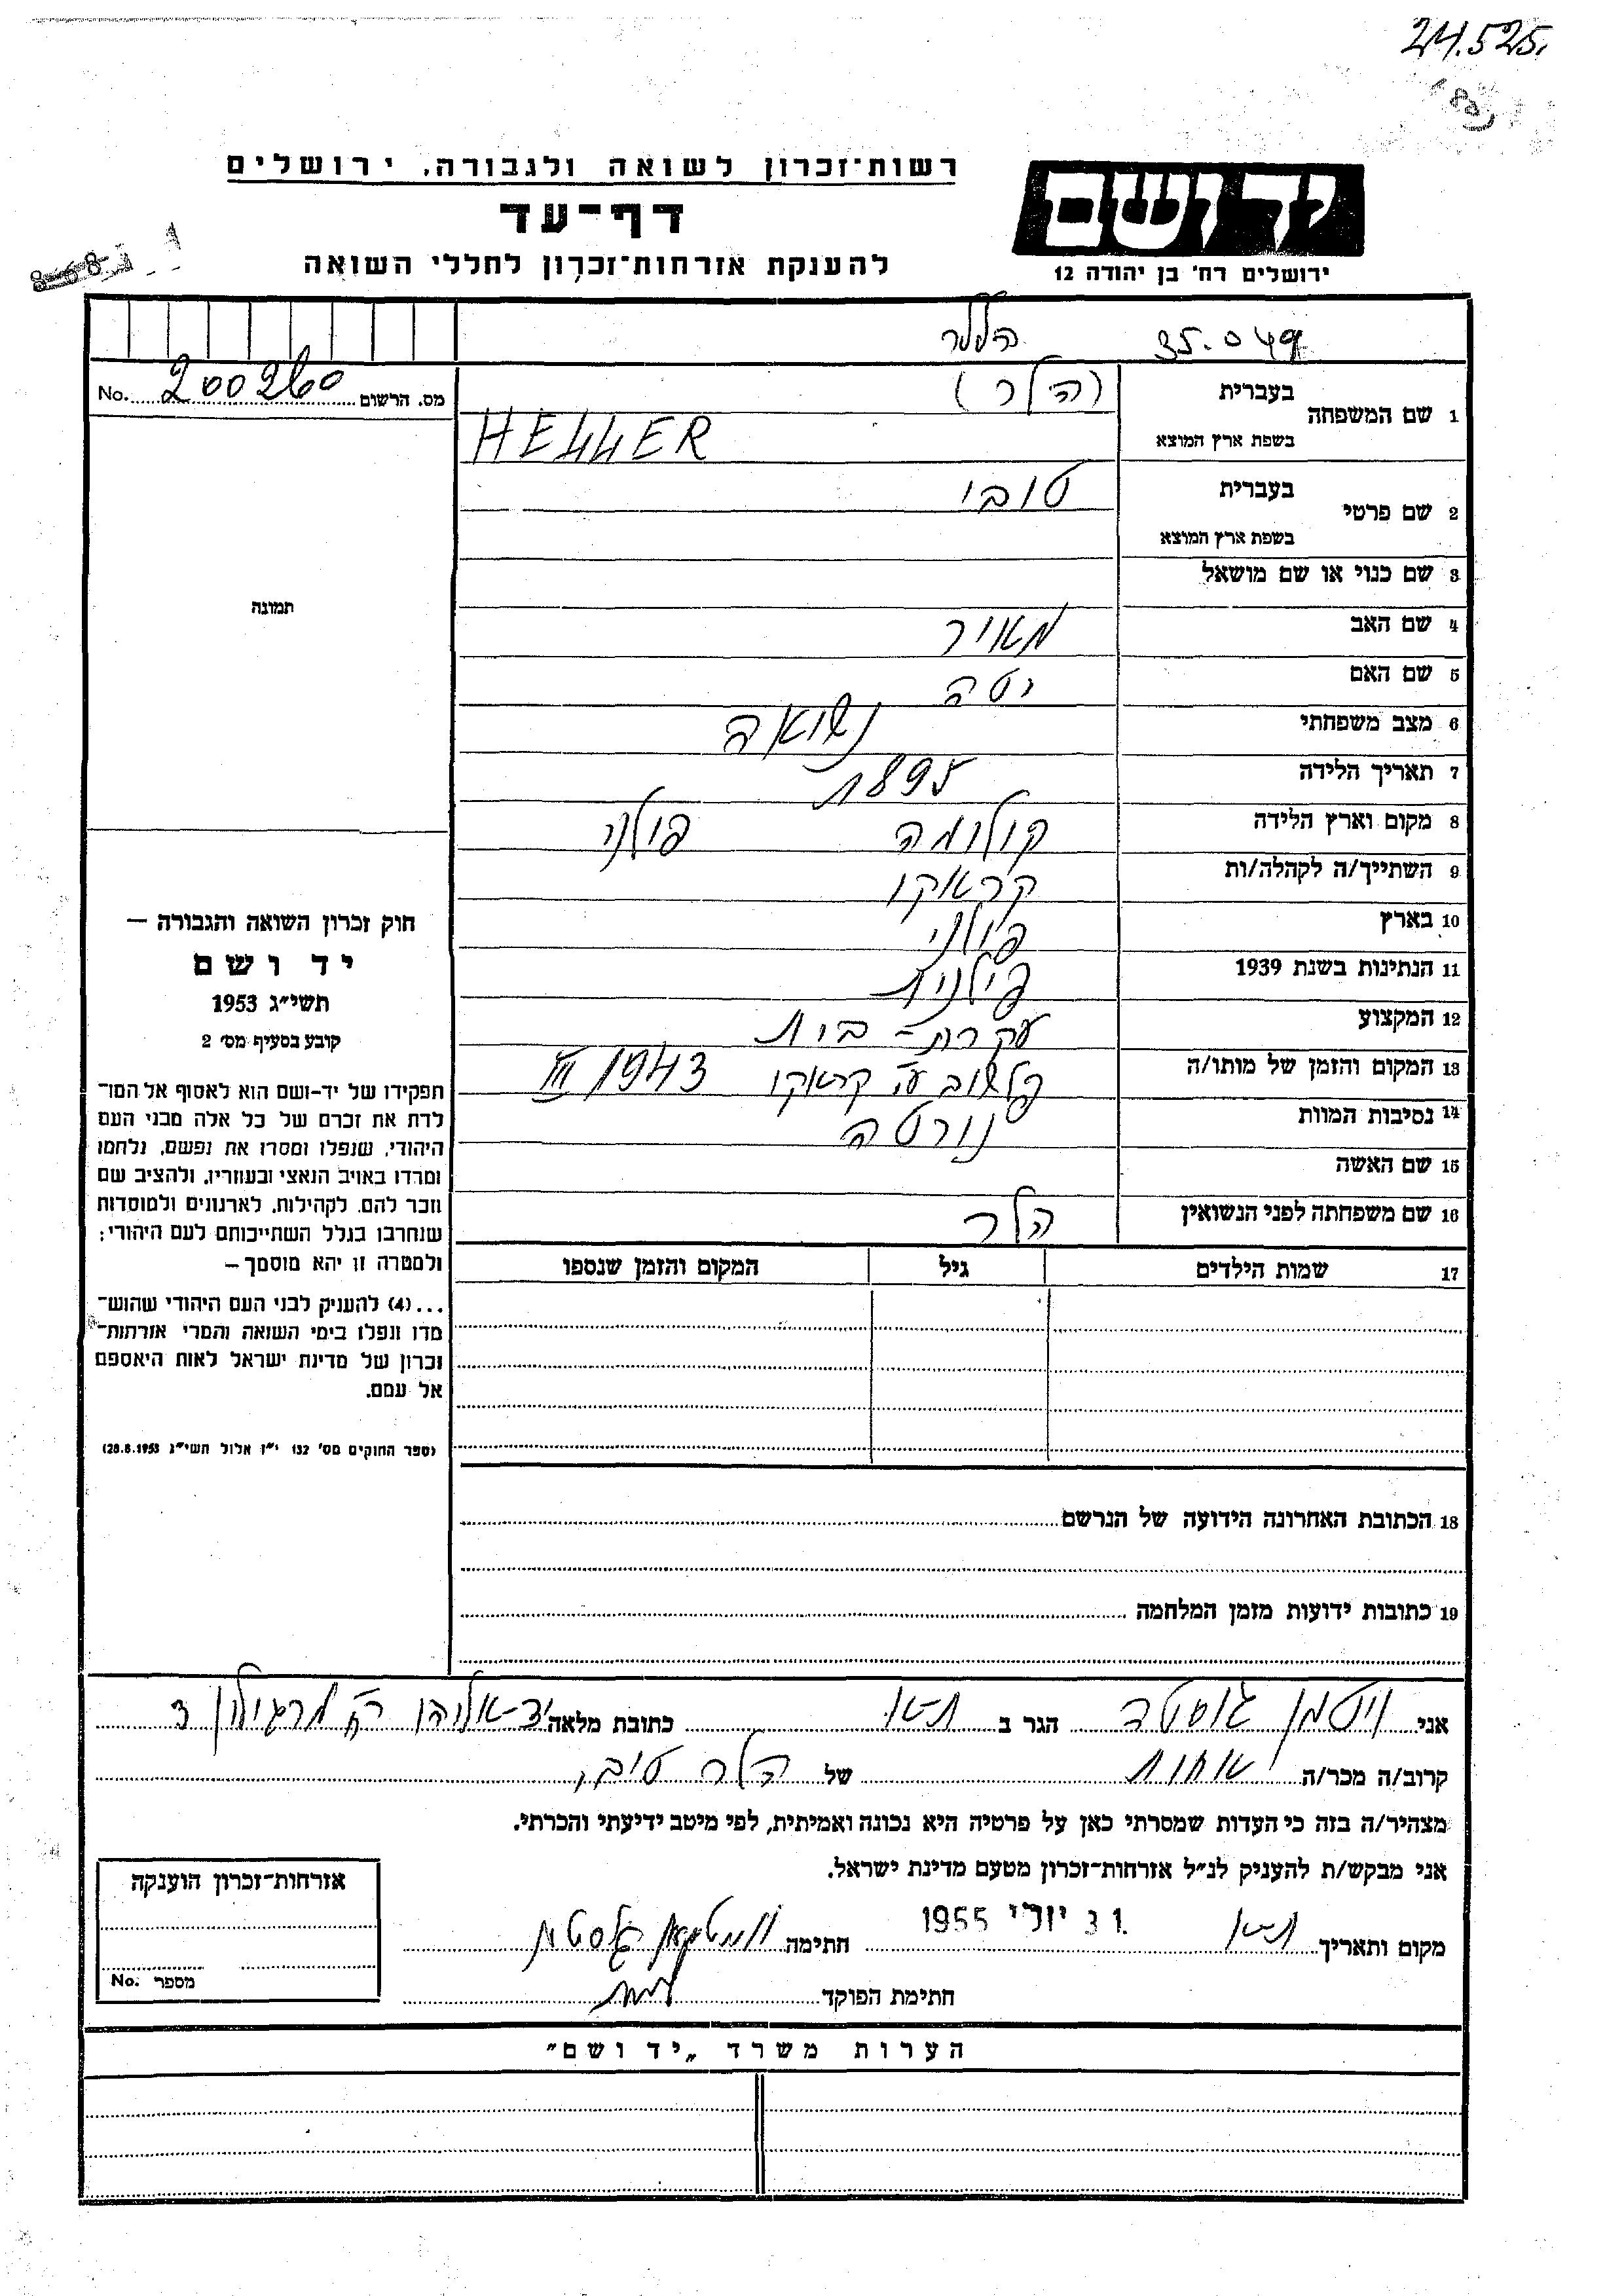 24.525.
רשות-זכרון לשואה ולגבורה, ירושלים
יד ושם
דף-עד
להענקת אזרחות-זכרון לחללי השואה
ירושלים רח' בן יהודה 12
35.049 הללר
מס. הרשום 200260 No.
1 שם המשפחה בעברית (הלר)
בשפת ארץ המוצא HELLER
2 שם פרטי בעברית טובי
בשפת ארץ המוצא
3 שם כנוי או שם מושאל
תמונה
4 שם האב מאיר
5 שם האם יטה
6 מצב משפחתי נשואה
7 תאריך הלידה 1895
8 מקום וארץ הלידה קולומה פולני
9 השתייך/ה לקהלה/ות קראקו
10 בארץ פולני
11 הנתינות בשנת 1939 פולנית
12 המקצוע עקרת-בית
13 המקום והזמן של מותו/ה פלשוב ע"י קראקו III 1943
14 נסיבות המוות נורטה
15 שם האשה
16 שם משפחתה לפני הנשואין הלר
17 שמות הילדים גיל המקום והזמן שנספו
18 הכתובת האחרונה הידועה של הנרשם
19 כתובות ידועות מזמן המלחמה
חוק זכרון השואה והגבורה –
יד ושם
תשי"ג 1953
קובע בסעיף מס' 2
תפקידו של יד-ושם הוא לאסוף אל המו-
לדת את זכרם של כל אלה מבני העם
היהודי, שנפלו ומסרו את נפשם, נלחמו
ומרדו באויב הנאצי ובעוזריו, ולהציב שם
וזכר להם, לקהילות, לארגונים ולמוסדות
שנחרבו בגלל השתייכותם לעם היהודי;
ולמטרה זו יהא מוסמך –
...(4) להעניק לבני העם היהודי שהוש-
מדו ונפלו בימי השואה והמרי אזרחות-
זכרון של מדינת ישראל לאות היאספם
אל עמם.
(ספר החוקים מס' 132 י"ז אלול תשי"ג 28.8.1953)
אני ויטמן גוסטה הגר ב ת"א כתובת מלאה יד-אליהו רח' מרגולין 3
קרוב/ה מכר/ה אחות של הלר טובי
מצהיר/ה בזה כי העדות שמסרתי כאן על פרטיה היא נכונה ואמיתית, לפי מיטב ידיעתי והכרתי.
אני מבקש/ת להעניק לנ"ל אזרחות-זכרון מטעם מדינת ישראל.
מקום ותאריך ת"א 31 יולי 1955 חתימה
חתימת הפוקד
אזרחות-זכרון הוענקה
מספר No.
הערות משרד „יד ושם"